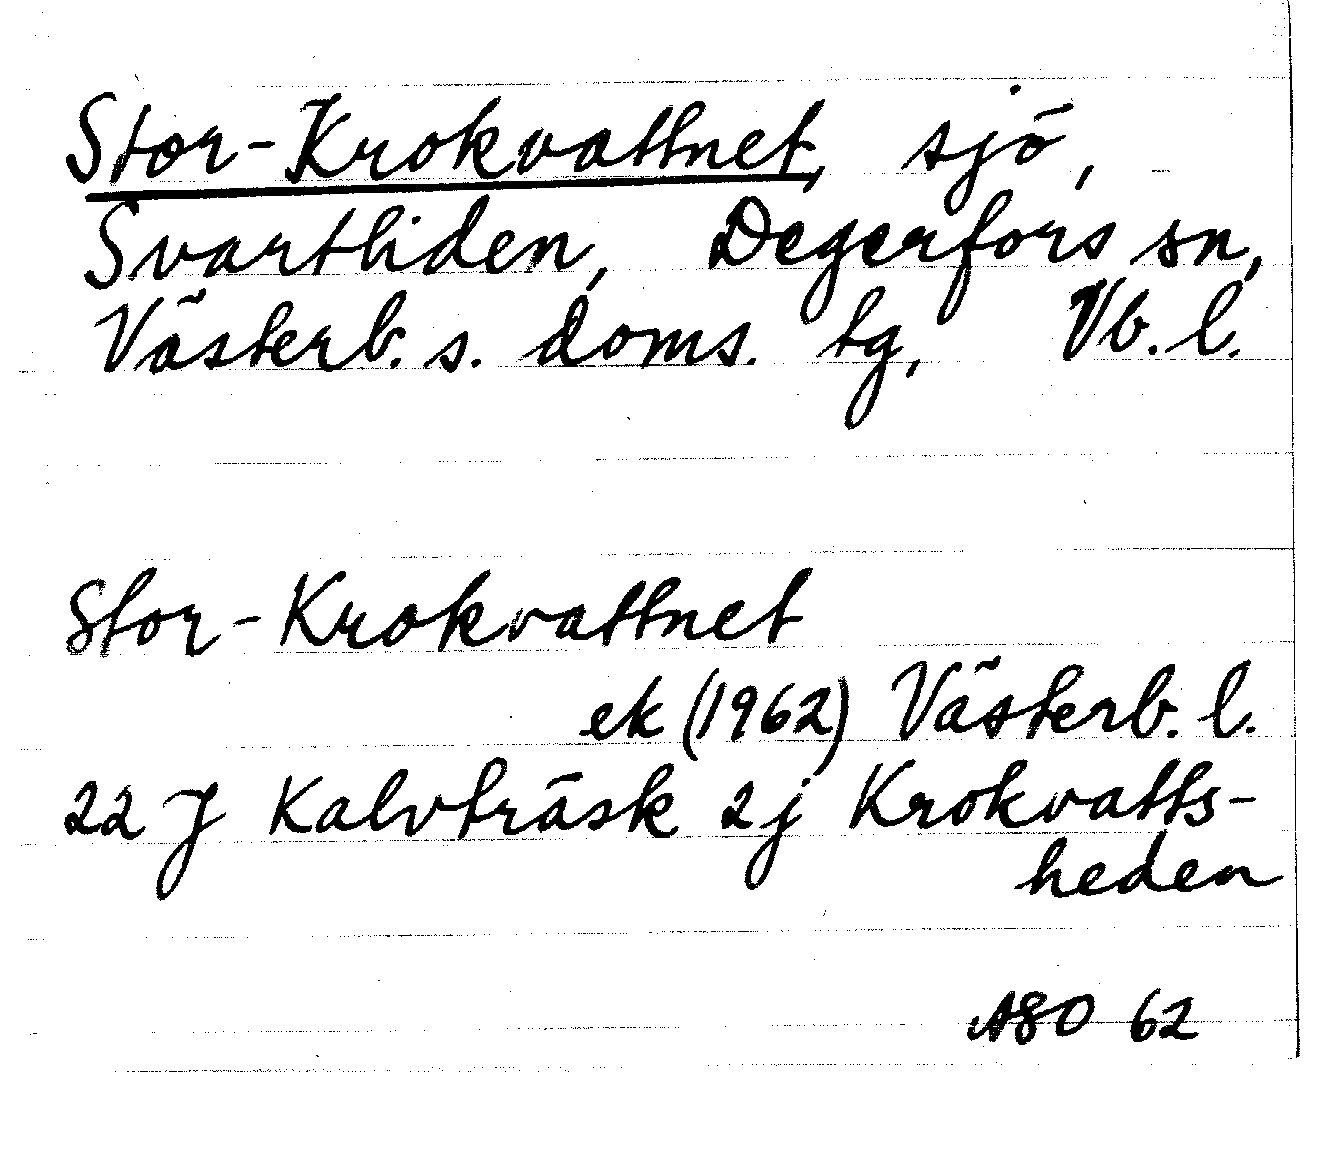 Stor-Krokvattnet, sjö,
Svartliden, Degerfors sn,
Västerb. s. doms. tg, Vb. l.
Stor-Krokvattnet
ek (1962) Västerb. l.
22 J Kalvträsk 2j Krokvatts-
heden
ASO 62